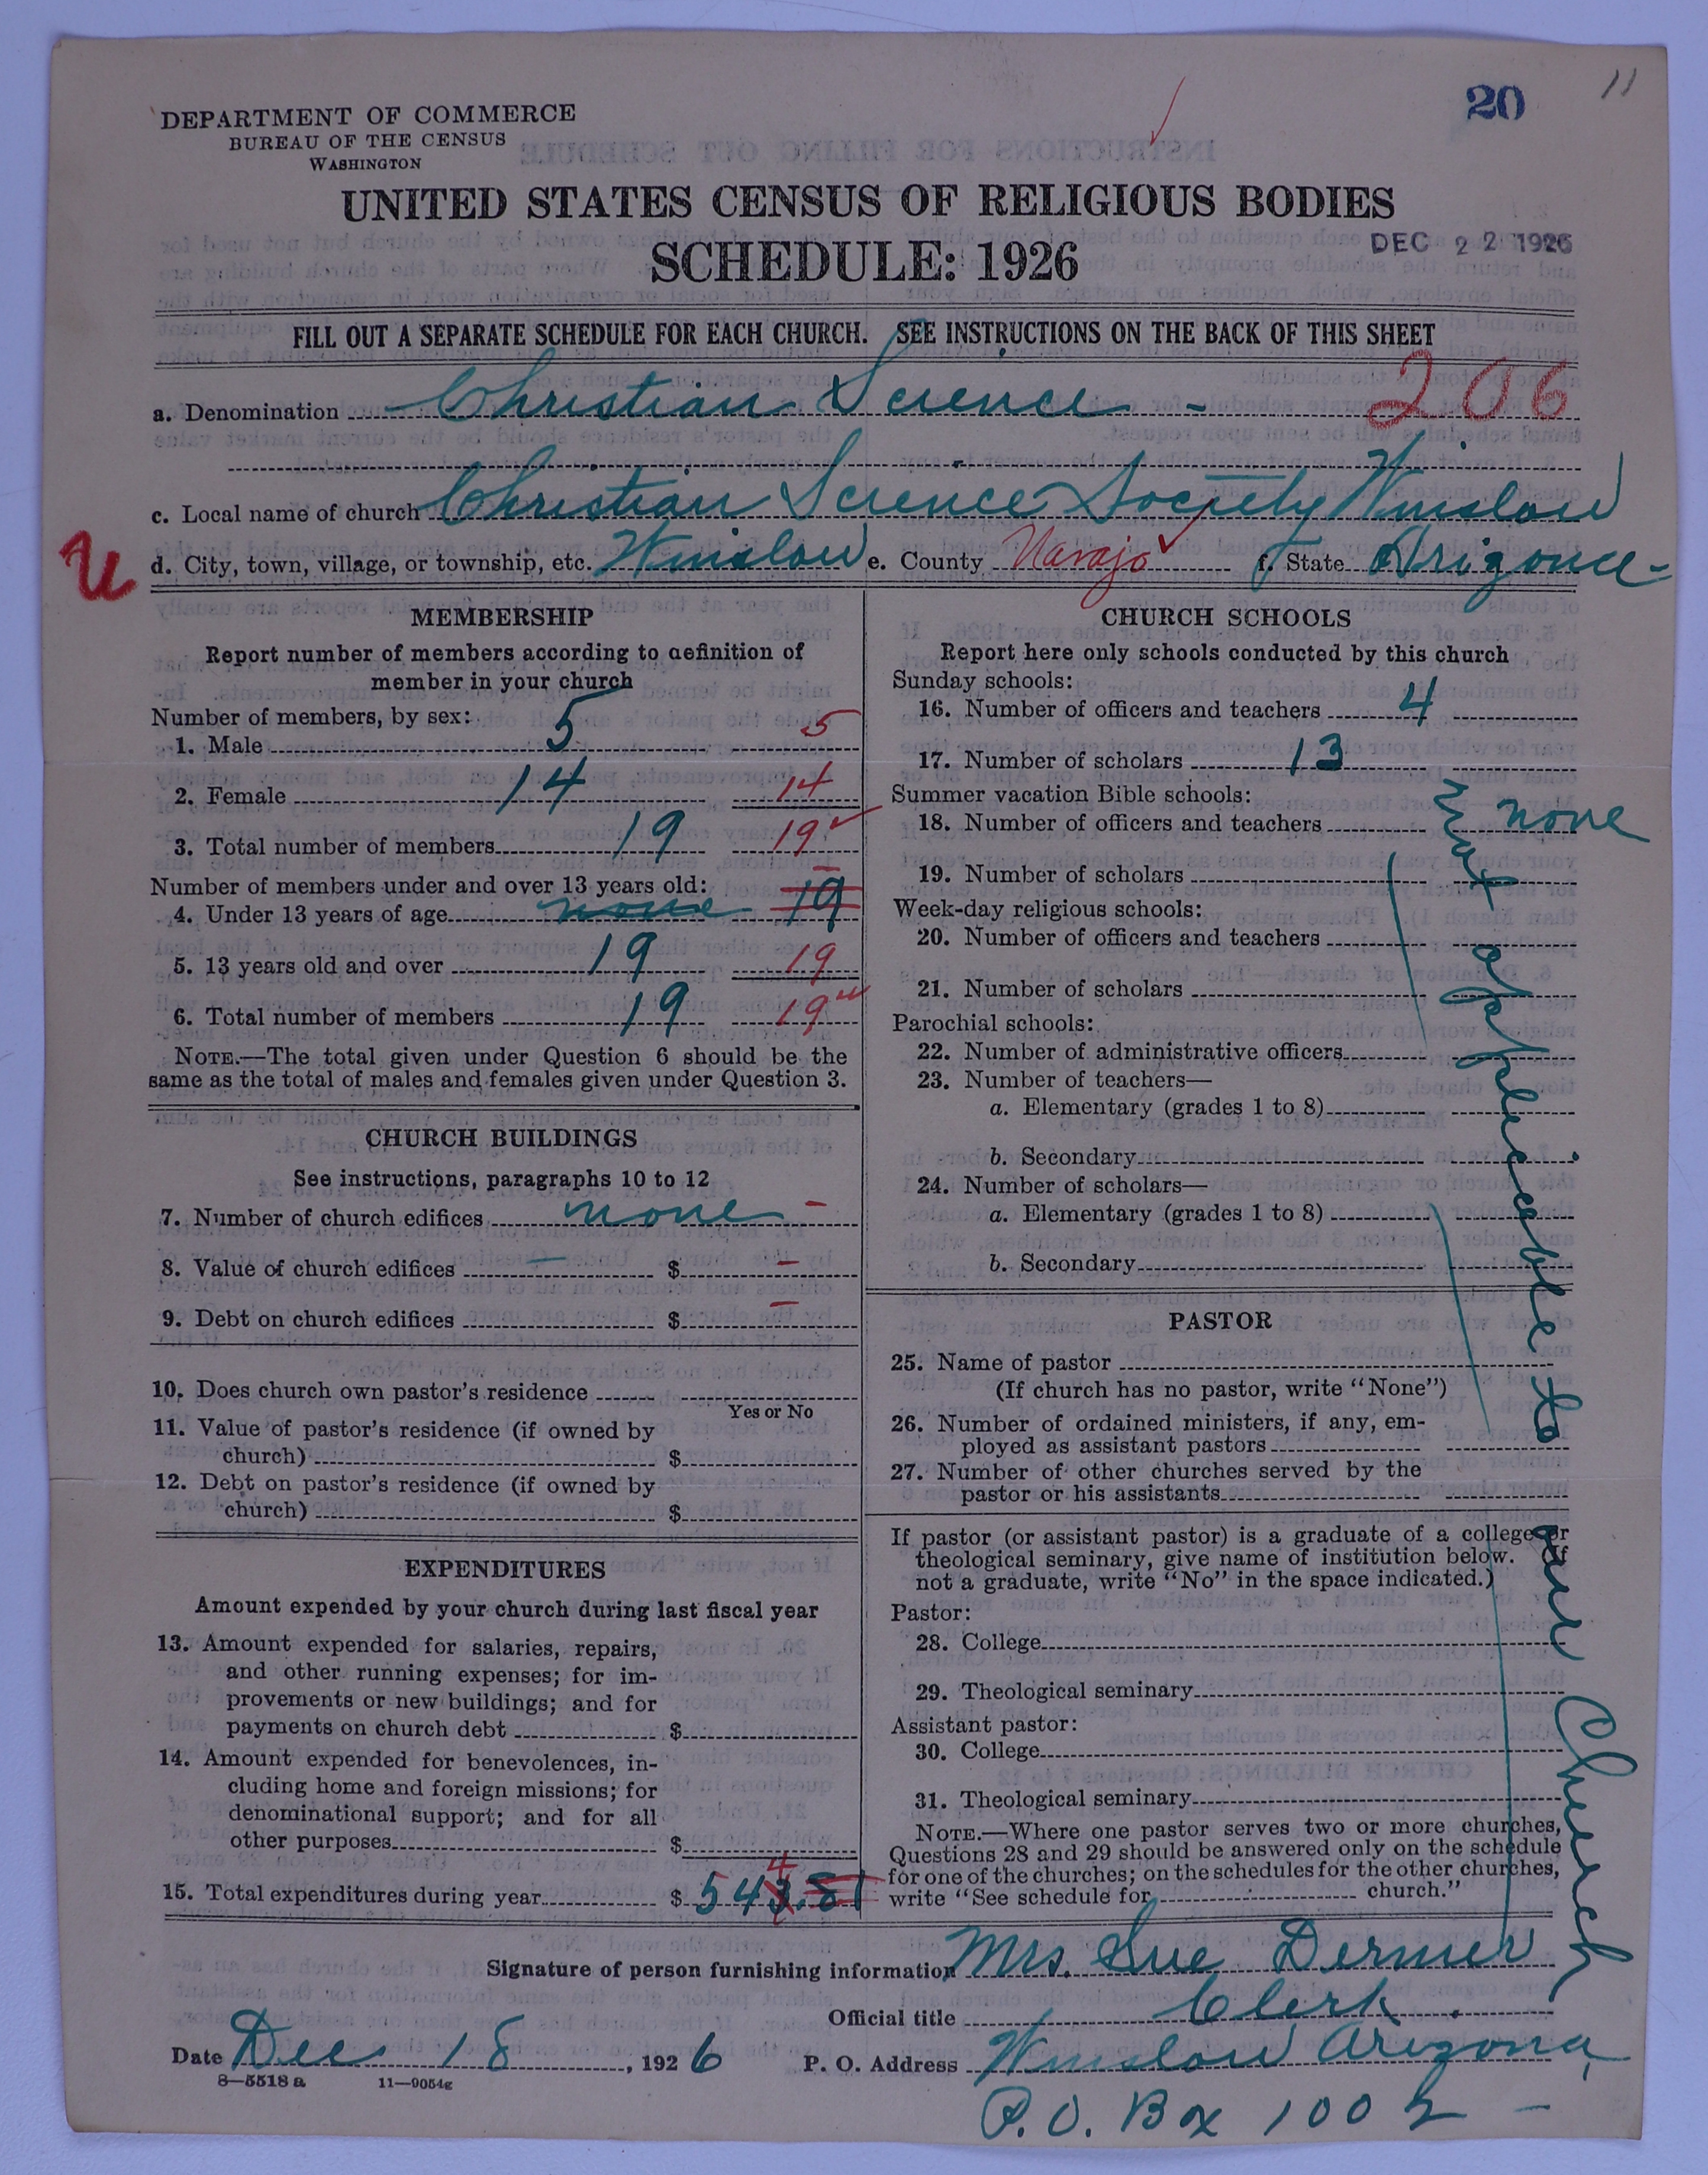 20 11
DEPARTMENT OF COMMERCE
BUREAU OF THE CENSUS
WASHINGTON
UNITED STATES CENSUS OF RELIGIOUS BODIES
SCHEDULE: 1926
DEC 22 1926
FILL OUT A SEPARATE SCHEDULE FOR EACH CHURCH. SEE INSTRUCTIONS ON THE BACK OF THIS SHEET
a. Denomination Christian Science - 206
c. Local name of church Christian Science Society Winslow
U
d. City, town, village, or township, etc. Winslow e. County Navajo f. State Arizona
MEMBERSHIP
Report number of members according to definition of
member in your church
Number of members, by sex:
1. Male 5 5
2. Female 14 14
3. Total number of members 19 19
Number of members under and over 13 years old:
4. Under 13 years of age none 19
5. 13 years old and over 19 19
6. Total number of members 19 19
NOTE.—The total given under Question 6 should be the
same as the total of males and females given under Question 3.
CHURCH BUILDINGS
See instructions, paragraphs 10 to 12
7. Number of church edifices none -
8. Value of church edifices — $ -
9. Debt on church edifices $ -
10. Does church own pastor's residence
Yes or No
11. Value of pastor's residence (if owned by
church) $
12. Debt on pastor's residence (if owned by
church) $
EXPENDITURES
Amount expended by your church during last fiscal year
13. Amount expended for salaries, repairs,
and other running expenses; for im-
provements or new buildings; and for
payments on church debt $
14. Amount expended for benevolences, in-
cluding home and foreign missions; for
denominational support; and for all
other purposes $
4
15. Total expenditures during year $ 543.81
CHURCH SCHOOLS
Report here only schools conducted by this church
Sunday schools:
16. Number of officers and teachers 4
17. Number of scholars 13
Summer vacation Bible schools:
18. Number of officers and teachers none
19. Number of scholars
Week-day religious schools:
20. Number of officers and teachers
21. Number of scholars
Parochial schools:
22. Number of administrative officers
23. Number of teachers—
a. Elementary (grades 1 to 8)
b. Secondary
24. Number of scholars—
a. Elementary (grades 1 to 8)
b. Secondary
Not applicable to our Church
PASTOR
25. Name of pastor
(If church has no pastor, write "None")
26. Number of ordained ministers, if any, em-
ployed as assistant pastors
27. Number of other churches served by the
pastor or his assistants
If pastor (or assistant pastor) is a graduate of a college or
theological seminary, give name of institution below. (If
not a graduate, write "No" in the space indicated.)
Pastor:
28. College
29. Theological seminary
Assistant pastor:
30. College
31. Theological seminary
NOTE.—Where one pastor serves two or more churches,
Questions 28 and 29 should be answered only on the schedule
for one of the churches; on the schedules for the other churches,
write "See schedule for church."
Signature of person furnishing information Mrs. Sue Dermer
Official title Clerk.
Date Dec 18, 1926 P. O. Address Winslow Arizona,
8—5518 a 11—9054g
P.O. Box 1002 -